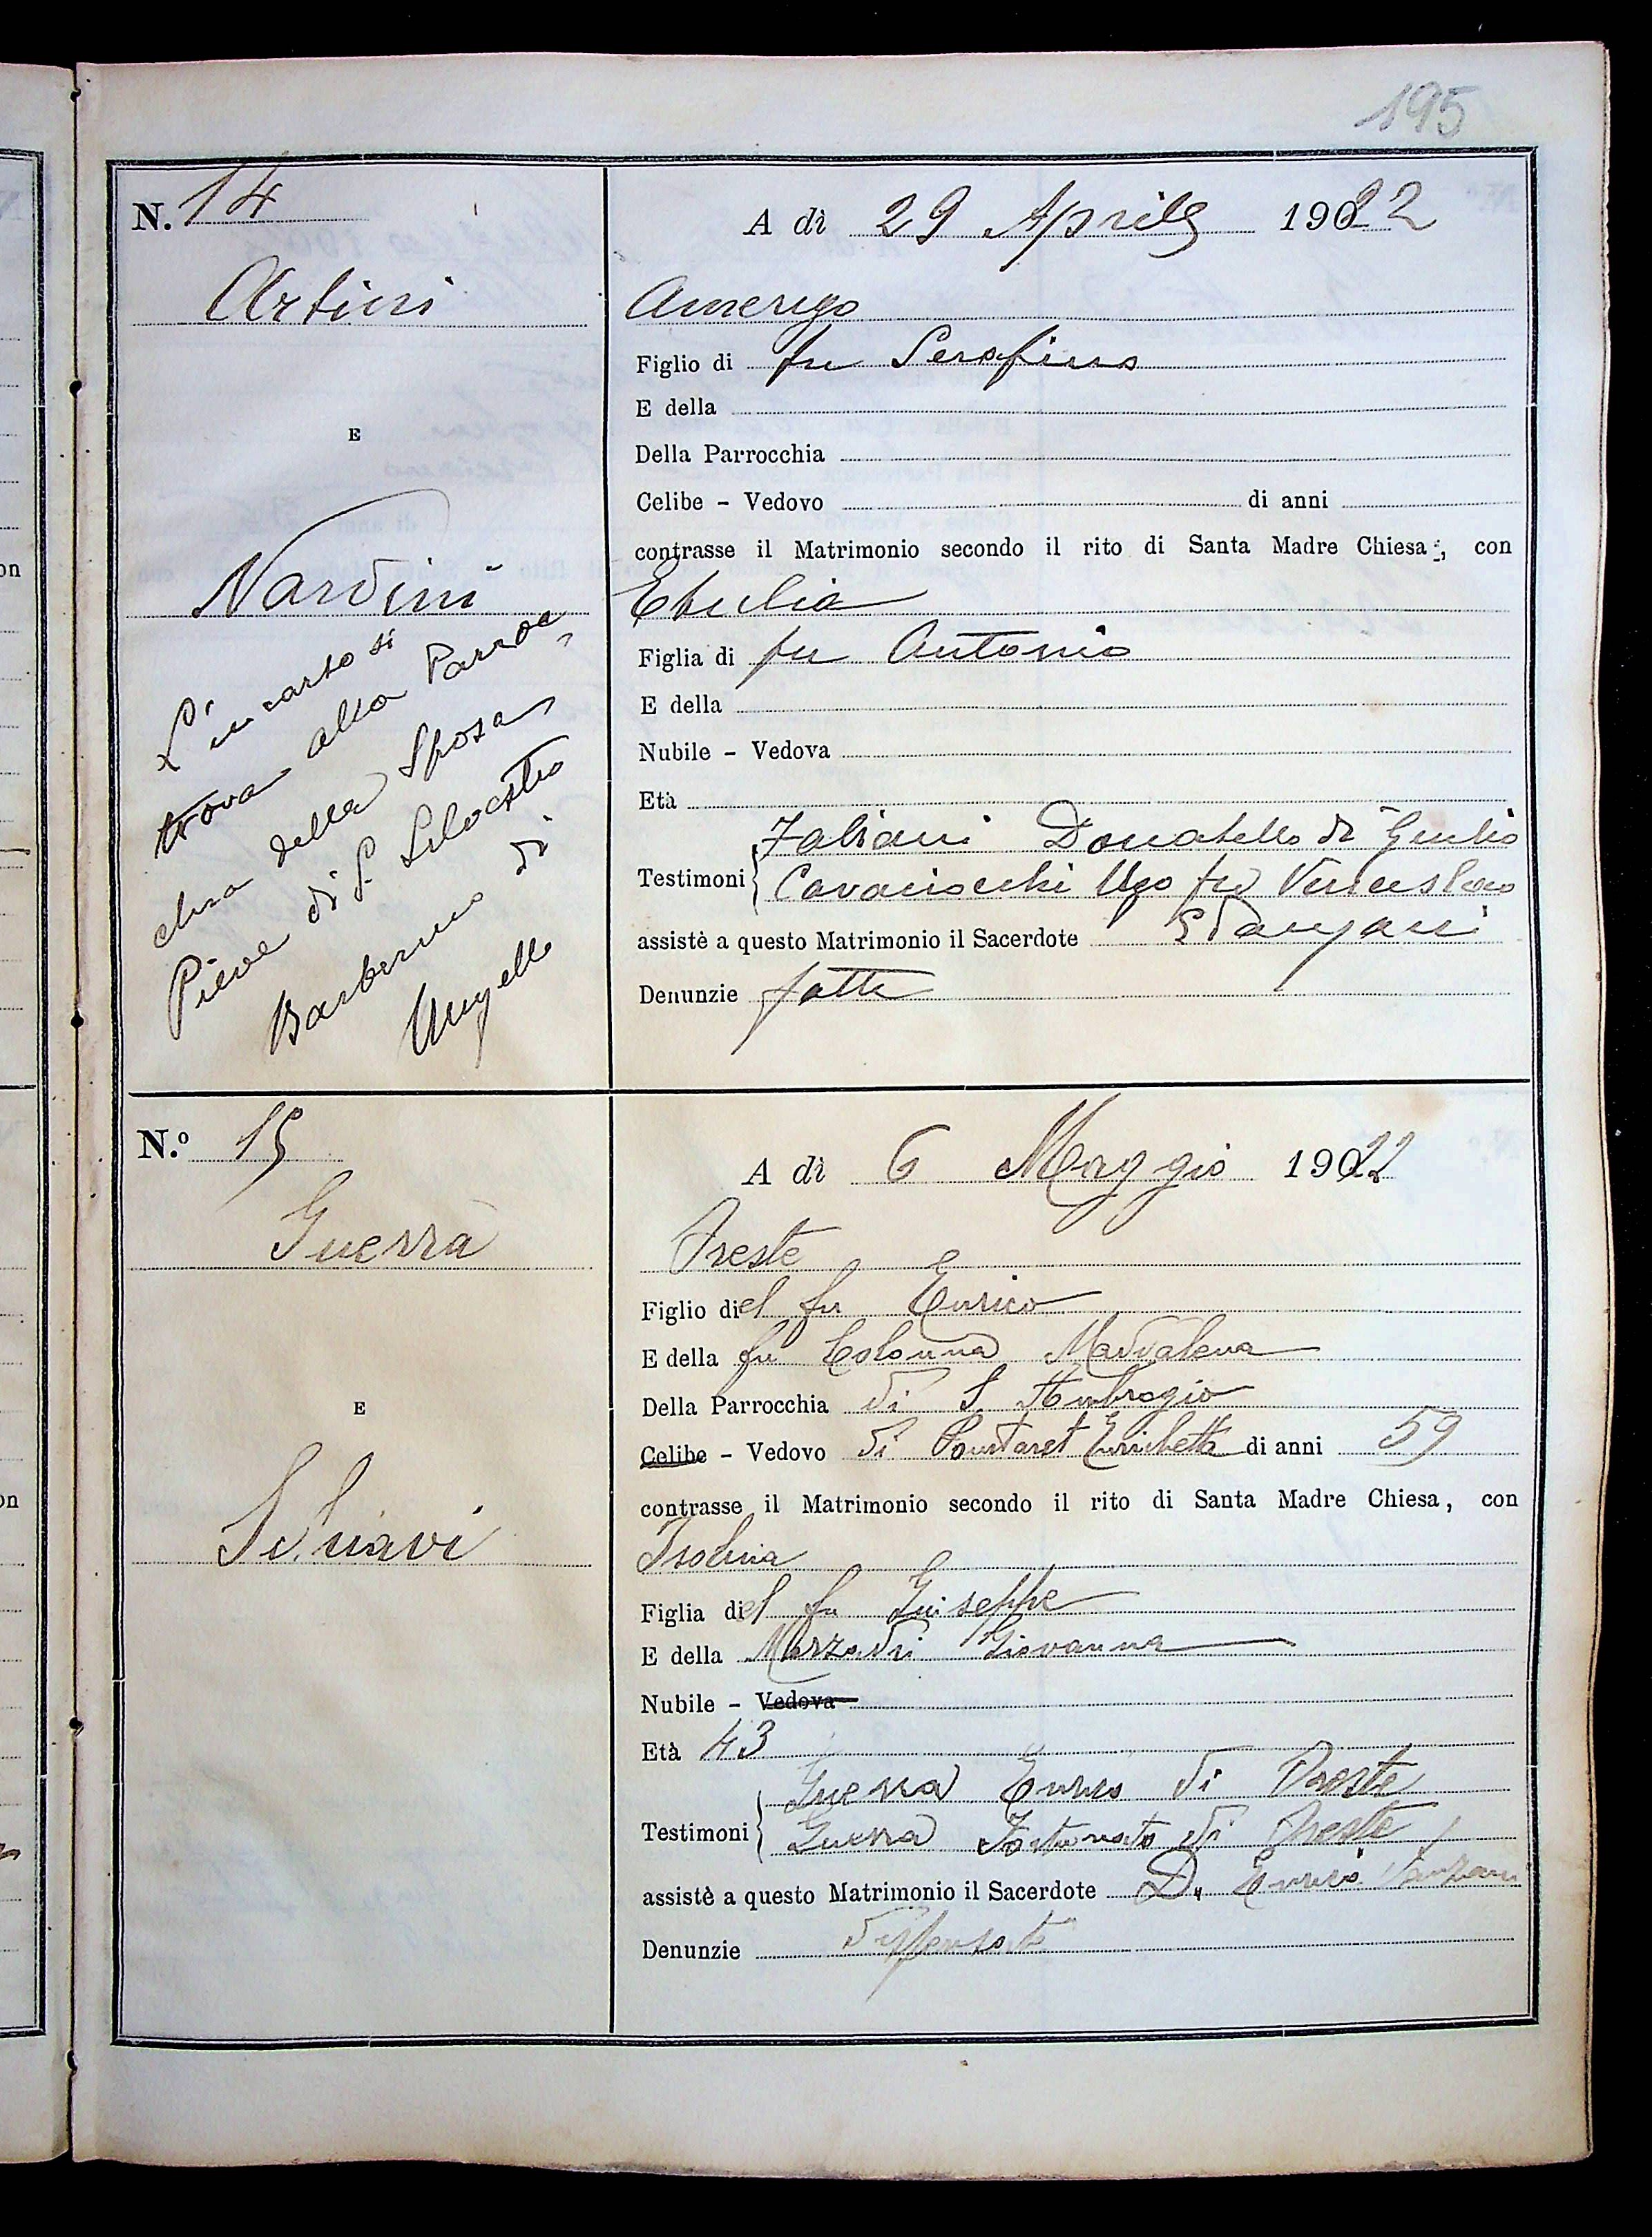 195
N. 14
A dì 29 Aprile 1922
Artini
Amerigo
Figlio di fu Serafino
E della
E
Della Parrocchia
Celibe – Vedovo di anni
contrasse il Matrimonio secondo il rito di Santa Madre Chiesa, con
Nardini
Etulia
Figlia di fu Antonio
E della
Nubile – Vedova
Età
Testimoni { Fabiani Donatello di Giulio
Cavaciocchi Ugo fu Venceslao
assistè a questo Matrimonio il Sacerdote
Denunzie fatte
L'incarto si
trova alla Parroc
chia della Sposa
Pieve di S. Silvestro
Barberino di
Mugello
N.º 15
A dì 6 Maggio 1922
Guerra
Oreste
Figlio del fu Enrico
E della fu Colonna Maddalena
E
Della Parrocchia di S. Ambrogio
Celibe – Vedovo di Enrichetta di anni 59
contrasse il Matrimonio secondo il rito di Santa Madre Chiesa, con
Isolina
Figlia del fu Giuseppe
E della Giovanna
Nubile – Vedova
Età 43
Testimoni { Guerra Enrico di Oreste
Guerra Fortunato di Oreste
assistè a questo Matrimonio il Sacerdote D. Enrico
Denunzie